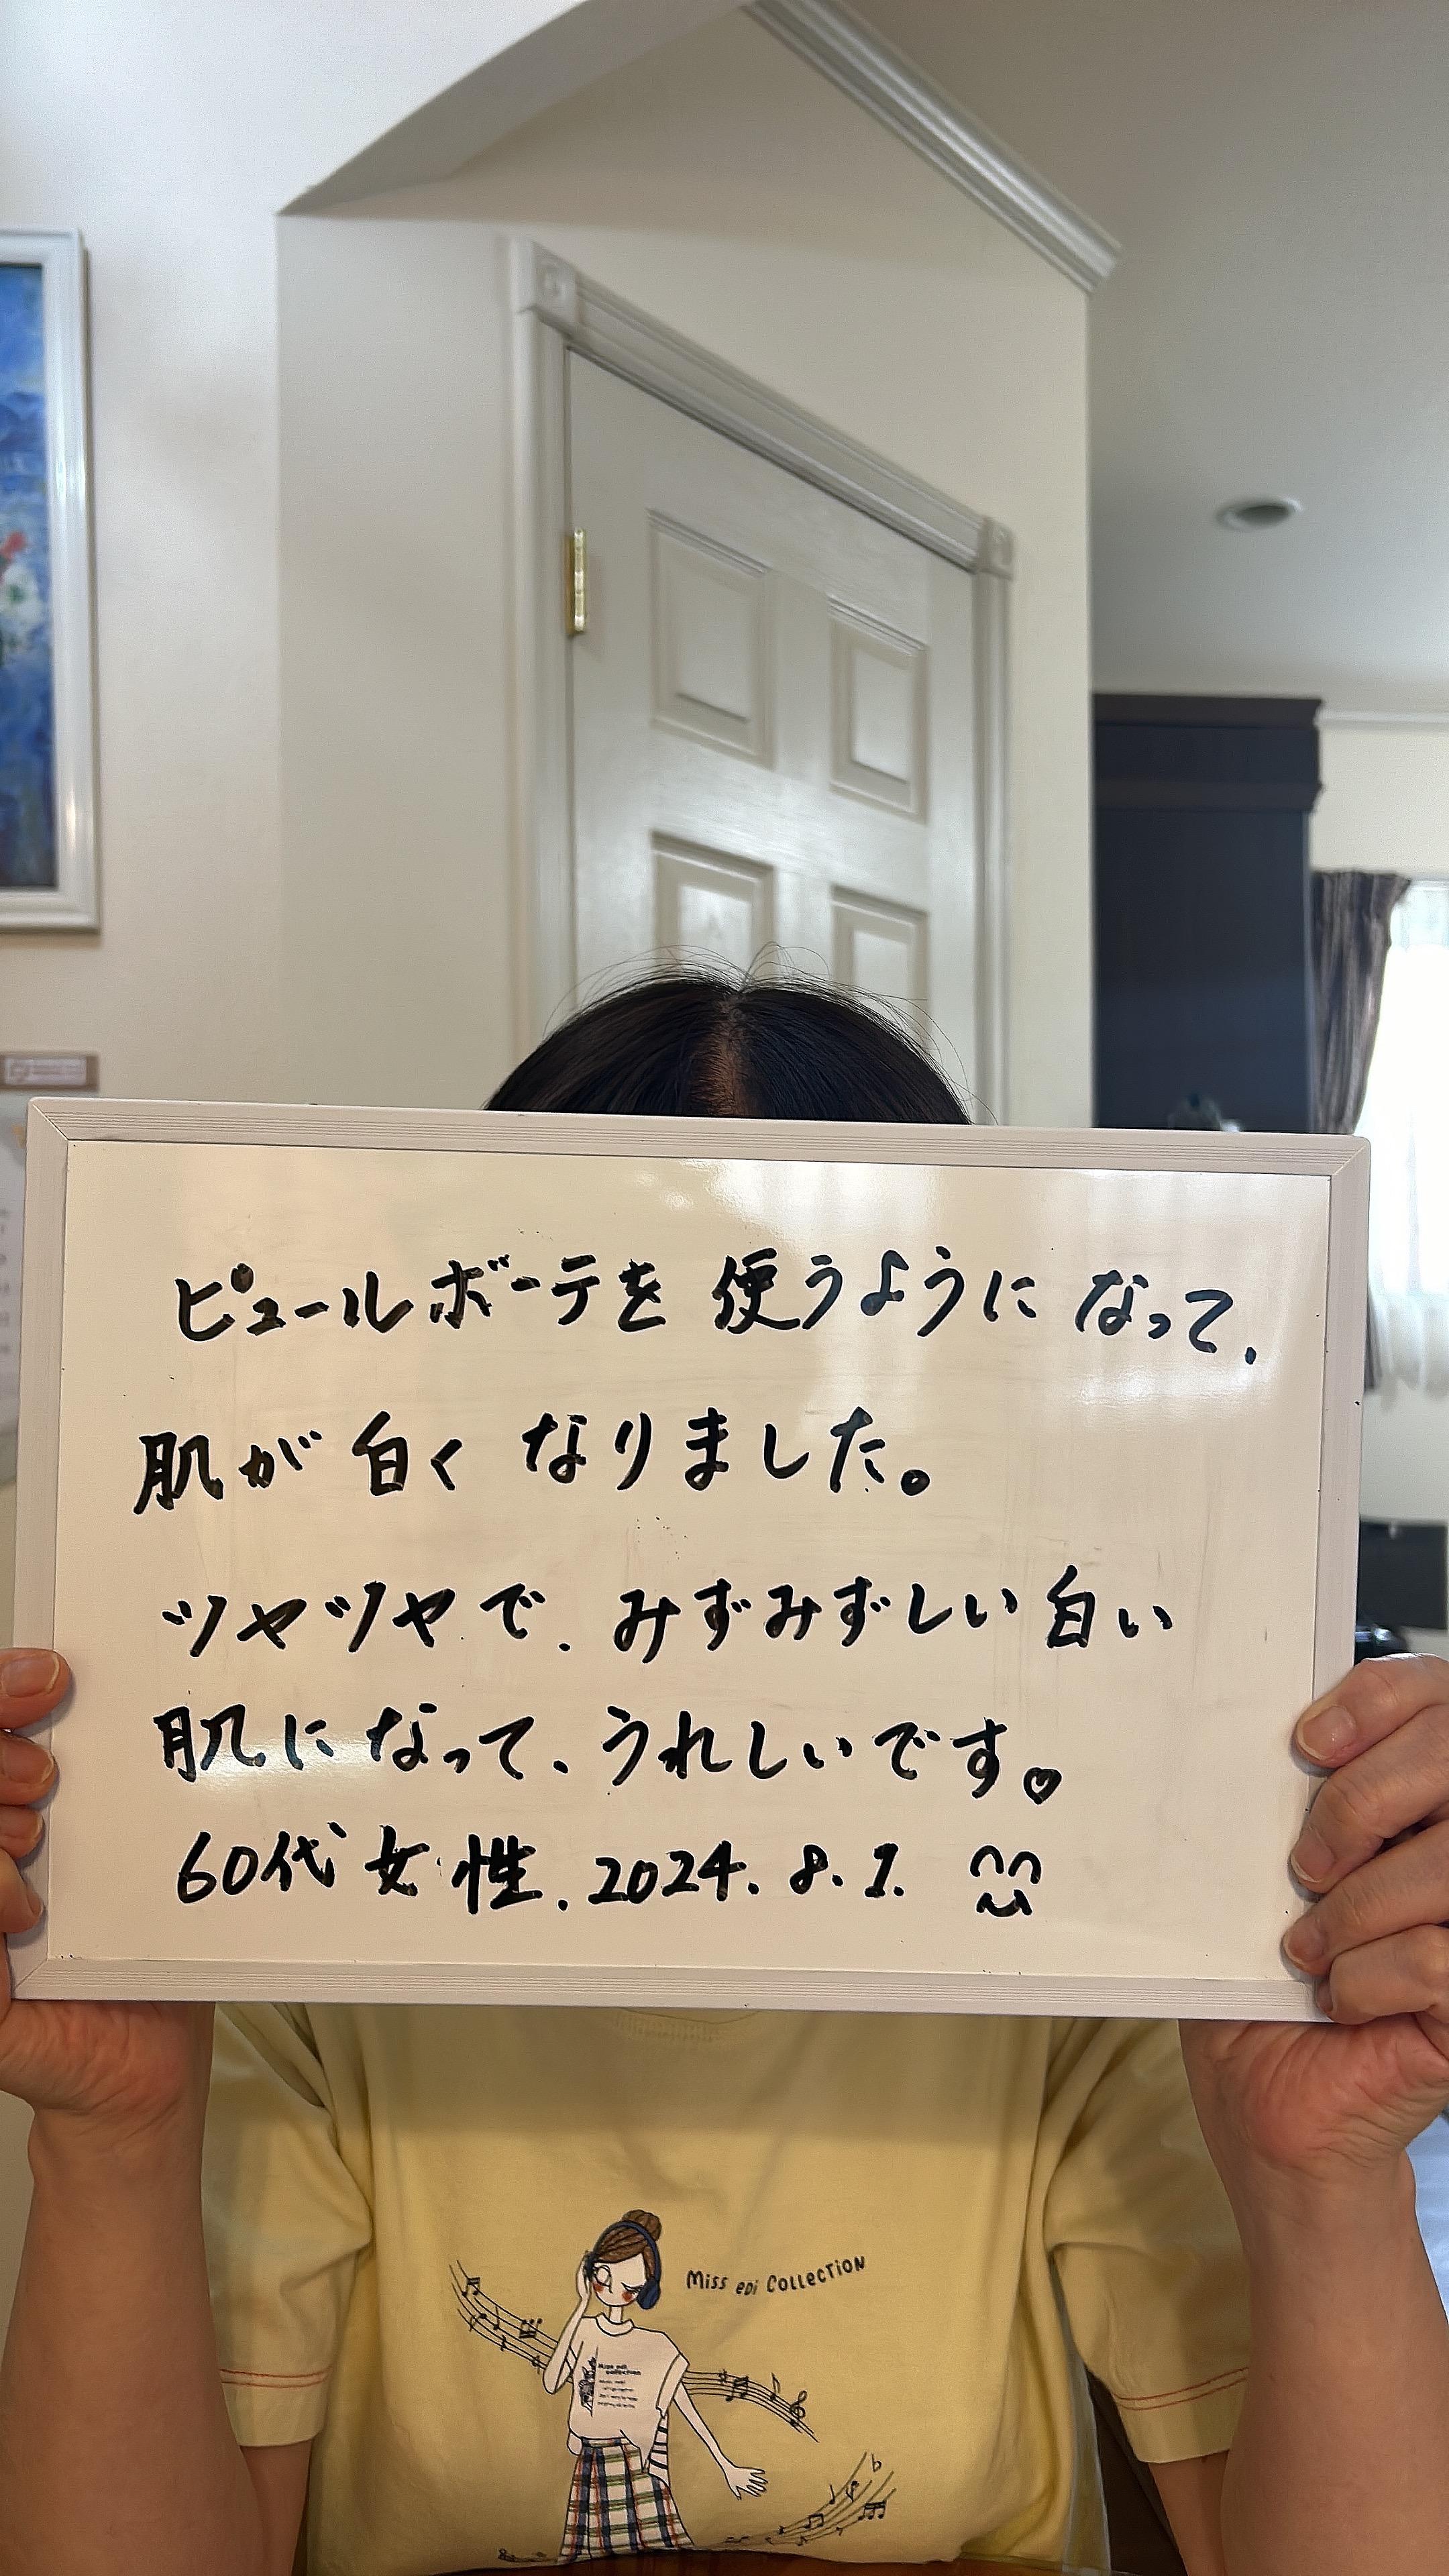 ピュールボーテを使うようになって、
肌が白くなりました。
ツヤツヤで、みずみずしい白い
肌になって、うれしいです。
60代女性.2024.8.1.
Miss eDi COLLECTiON